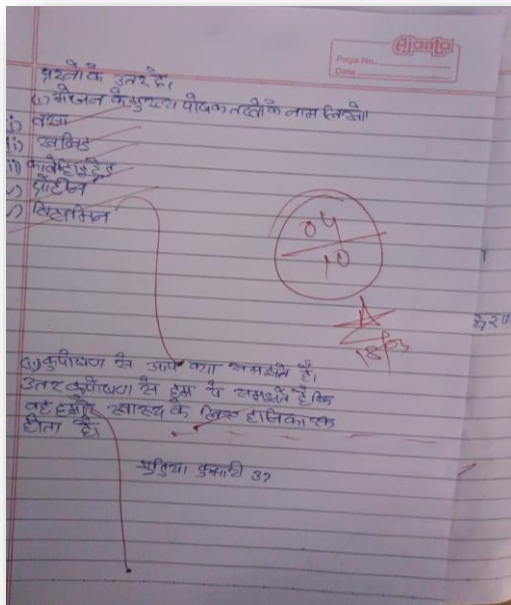 Ajanta
Page No.
Date
प्रश्नो के उतर दे।
(i) भोजन के मुख्य पोषक तत्वो के नाम लिखो
i) वसा
ii) खनिज
iii) कार्बोहाइड्रेड
प्रोटीन
विटामिन
04
10
कुपोषण से आप क्या समझते है।
उतर कुपोषण से हम ये समझते है कि
वह हमारे स्वास्थ्य के लिए हानिकारक
होता है।
कुमारी 37